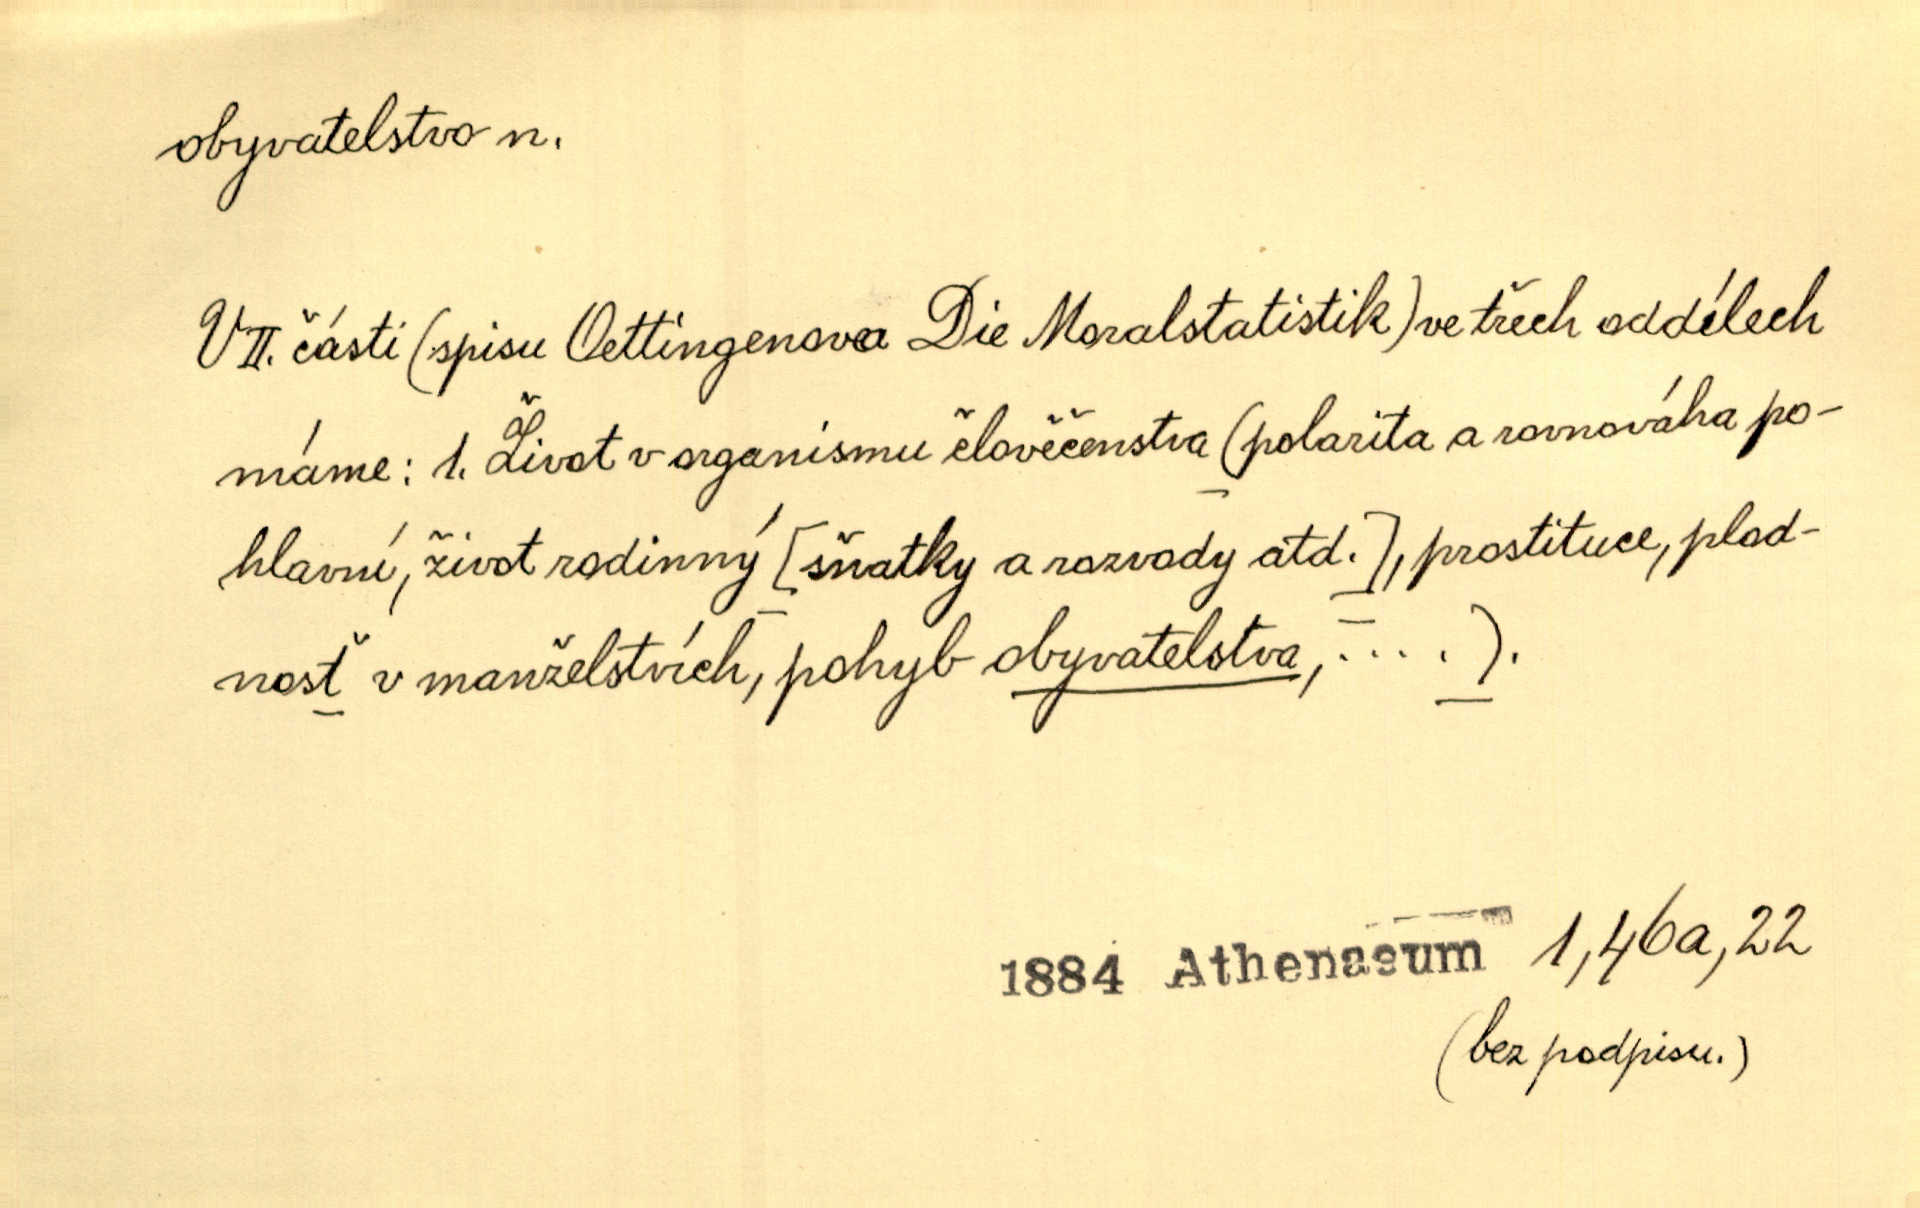 obyvatelstvo n.
V II. části (spisu Oettingenova Die Moralstatistik) ve třech oddílech
máme: 1. Život v organismu člověčenstva (polarita a rovnováha po-
hlavní, život rodinný [sňatky a rozvody atd.], prostituce, plod-
nosť v manželstvích, pohyb obyvatelstva, .... ).
1884 Athenaeum 1,46a,22
(bez podpisu.)